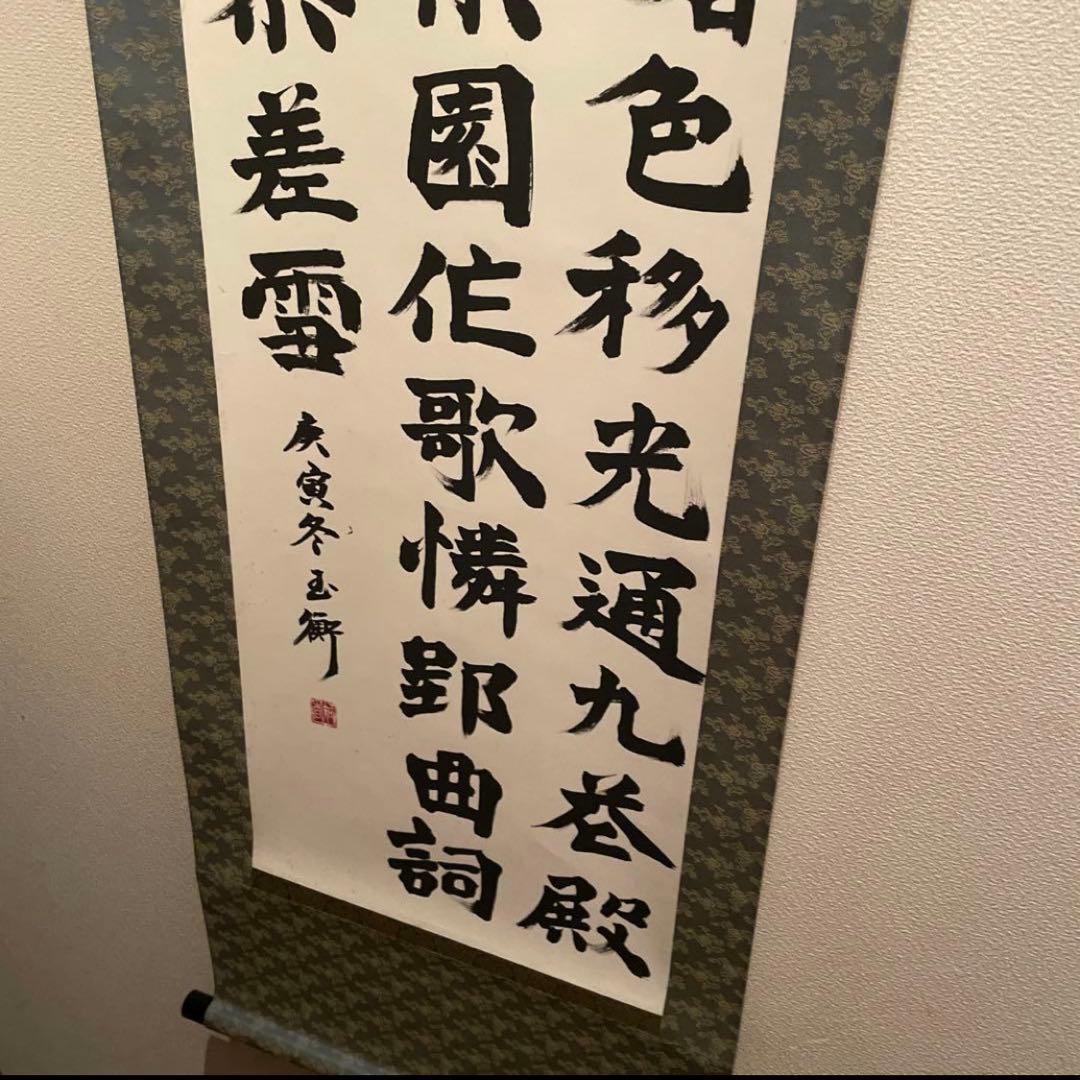 色移光通九巷殿
園作歌憐郢曲詞
差雪
庚寅冬玉衡